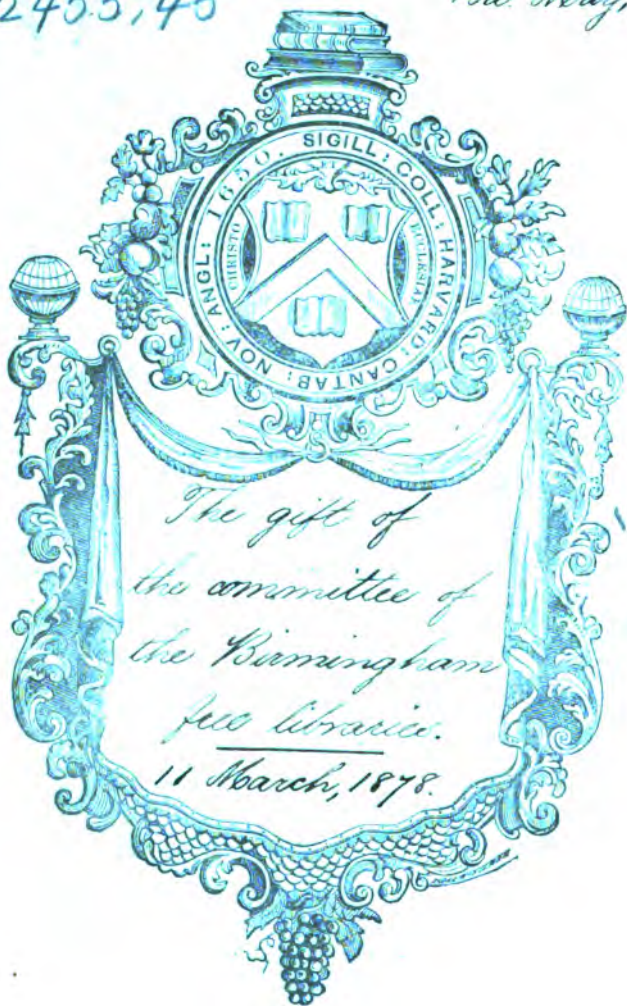 SIGILL: COLL: HARVARD: CANTAB: NOV: ANGL: 1650.
CHRISTO
ECCLESIÆ
The gift of
the committee of
the Birmingham
free libraries.
11 March, 1878.